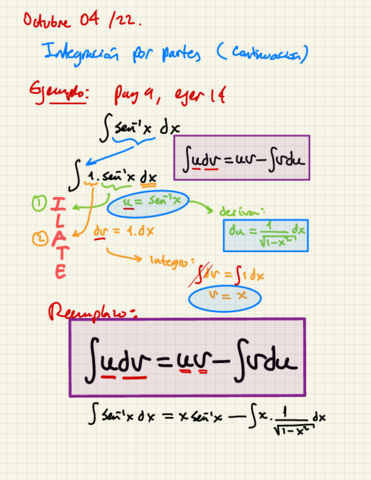 Octubre 04 /22.
Integración por partes (continuación)
Ejemplo: Pag 9, ejer 14
∫ sen⁻¹x dx
∫udv = uv − ∫vdu
∫ 1. sen⁻¹x dx
① I
L
② A
T
E
u = sen⁻¹x
deriva:
du = 1/√(1−x²) dx
dv = 1.dx
integro:
∫dv = ∫1dx
v = x
Reemplazo:
∫udv = uv − ∫vdu
∫ sen⁻¹x dx = x sen⁻¹x − ∫x. 1/√(1−x²) dx